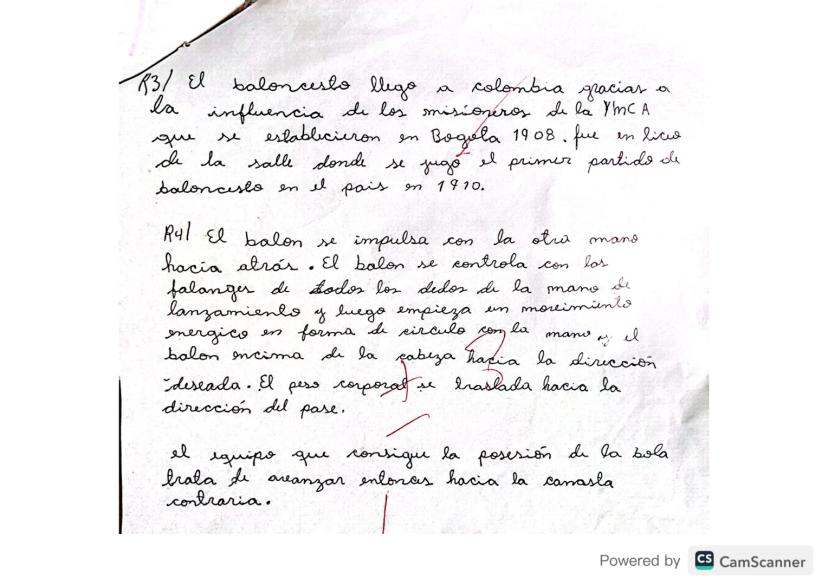 R3/ El baloncesto llego a colombia gracias a
la influencia de los misioneros de la YMCA
que se establecieron en Bogota 1908. fue en liceo
de la salle donde se jugó el primer partido de
baloncesto en el pais en 1910.
R4/ El balon se impulsa con la otra mano
hacia atrás. El balon se controla con las
falanges de todos los dedos de la mano de
lanzamiento y luego empieza un movimiento
energico en forma de circulo con la mano y el
balon encima de la cabeza hacia la dirección
deseada. El peso corporal se traslada hacia la
dirección del pase.
el equipo que consigue la posesión de la bola
trata de avanzar entonces hacia la canasta
contraria.
Powered by CS CamScanner